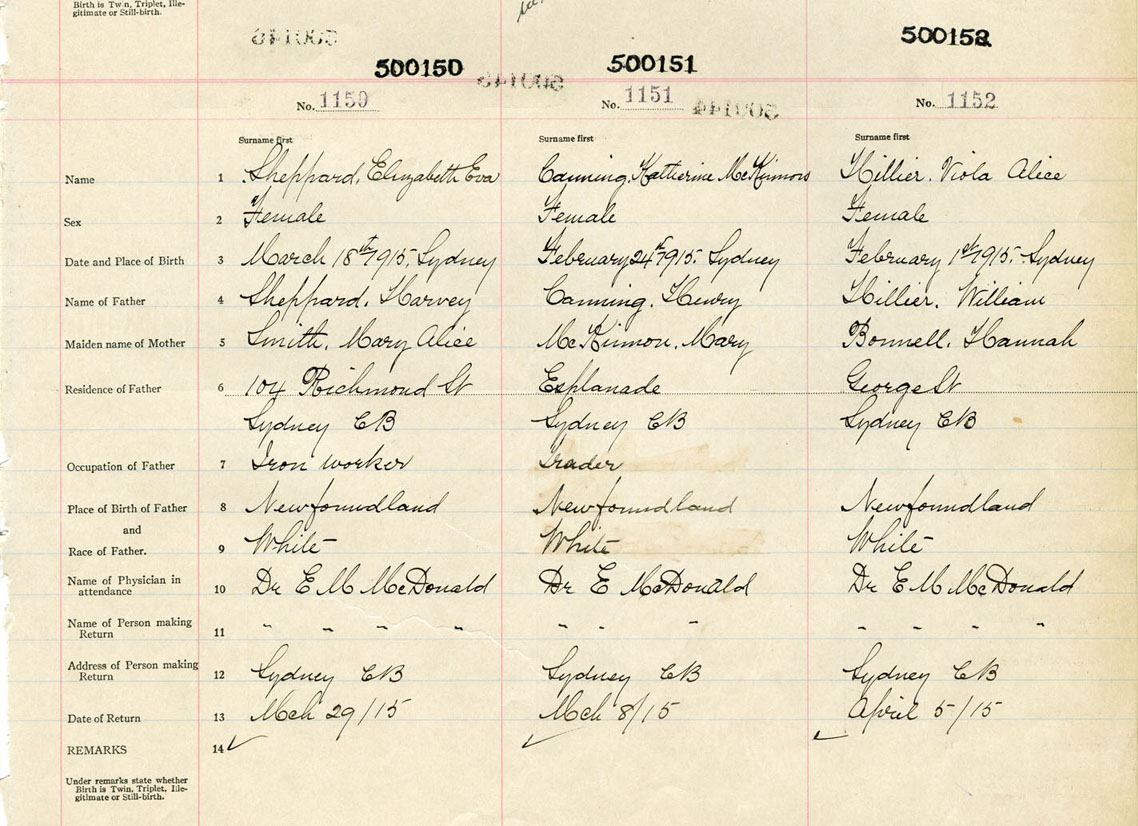 Birth is Twin, Triplet, Ille-
gitimate or Still-birth.
500150 500151 500152
No. 1150 No. 1151 No. 1152
Surname first Surname first Surname first
Name 1 Sheppard, Elizabeth Eva Canning, Katherine McKinnon Hillier, Viola Alice
Sex 2 Female Female Female
Date and Place of Birth 3 March 18th 1915, Sydney February 24th 1915. Sydney February 1st 1915. Sydney
Name of Father 4 Sheppard, Harvey Canning, Henry Hillier, William
Maiden name of Mother 5 Smith, Mary Alice McKinnon, Mary Bonnell, Hannah
Residence of Father 6 104 Richmond St Esplanade George St
Sydney CB Sydney CB Sydney CB
Occupation of Father 7 Iron worker Trader
Place of Birth of Father 8 Newfoundland Newfoundland Newfoundland
and
Race of Father. 9 White White White
Name of Physician in
attendance 10 Dr E M McDonald Dr E McDonald Dr E M McDonald
Name of Person making
Return 11 " " " " " " " " " " "
Address of Person making
Return 12 Sydney CB Sydney CB Sydney CB
Date of Return 13 Mch 29/15 Mch 8/15 April 5/15
REMARKS 14 ✓ ✓ ✓
Under remarks state whether
Birth is Twin, Triplet, Ille-
gitimate or Still-birth.